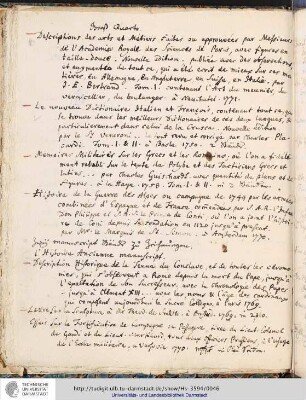 Grand Quarto
Descriptions des arts et Metiers faites ou approuvées par Messieurs
de l'Academie Royale des Sciences de Paris, avec figures en
taille-douce. Nouvelle Edition. publiée avec des observations
et augmentée de tout ce, qui a été écrit de mieux sur ces ma-
tieres, en Allemagne, en Angleterre en Suisse, en Italie, par
J. E. Bertrand. Tom. I. contenant l'Art du meunier, du
vermicellier, du boulanger. à Neufchatel. 1771.
Le nouveau Dictionaire Italien et François, contenant tout ce qui
se trouve dans les meilleurs Dictionaires de ces deux langues, &
particulierement dans celui de la Crusca. Nouvelle Edition
par le Sr Veneroni. tout revu et corrigé par Charles Pla-
cardi. Tom. I. & II. à Basle. 1750. 2 Bände.
Memoires Militaires sur les Grecs et les Romains, où l'on a fidele-
ment retabli sur le texte de Polybe et des Tacticiens Grecs et
Latins. par Charles Guischardt. avec quantité de plans et de
Figures. à la Haye. 1758. Tom. I. & II. in 2 Bänden.
Histoire de la guerre des Alpes ou campagne de 1744 par les armées
combinées d'Espagne et de France commandées par S. A. R. l'Infant
Don Philippe et S. A. S. le Prince de Conti. où l'on a joint l'histoire
de Coni depuis sa fondation en 1120 jusqu'à present.
par Mr. le Marquis de St. Simon. à Amsterdam 1770.
manuscript Bände
l'Histoire Ancienne manuscript.
Description Historique de la Tenue du Conclave, et de toutes les ceremo-
nies, qui s'observent à Rome depuis la mort du Pape, jusqu'à
l'exaltation de son Successeur. avec la chronologie des Papes
jusqu'à Clement XIII. avec les noms & l'age des Cardinaux
qui composent aujourdhui le Sacré College. à Paris 1769.
Lettre sur la Sculpture, à Amsterd. 1769. in 4to.
Essai sur la Fortification de campagne
1770.
TECHNISCHE
UNIVERSITÄT
DARMSTADT
http://tudigit.ulb.tu-darmstadt.de/show/Hs-3594/0046
Universitäts- und Landesbibliothek Darmstadt